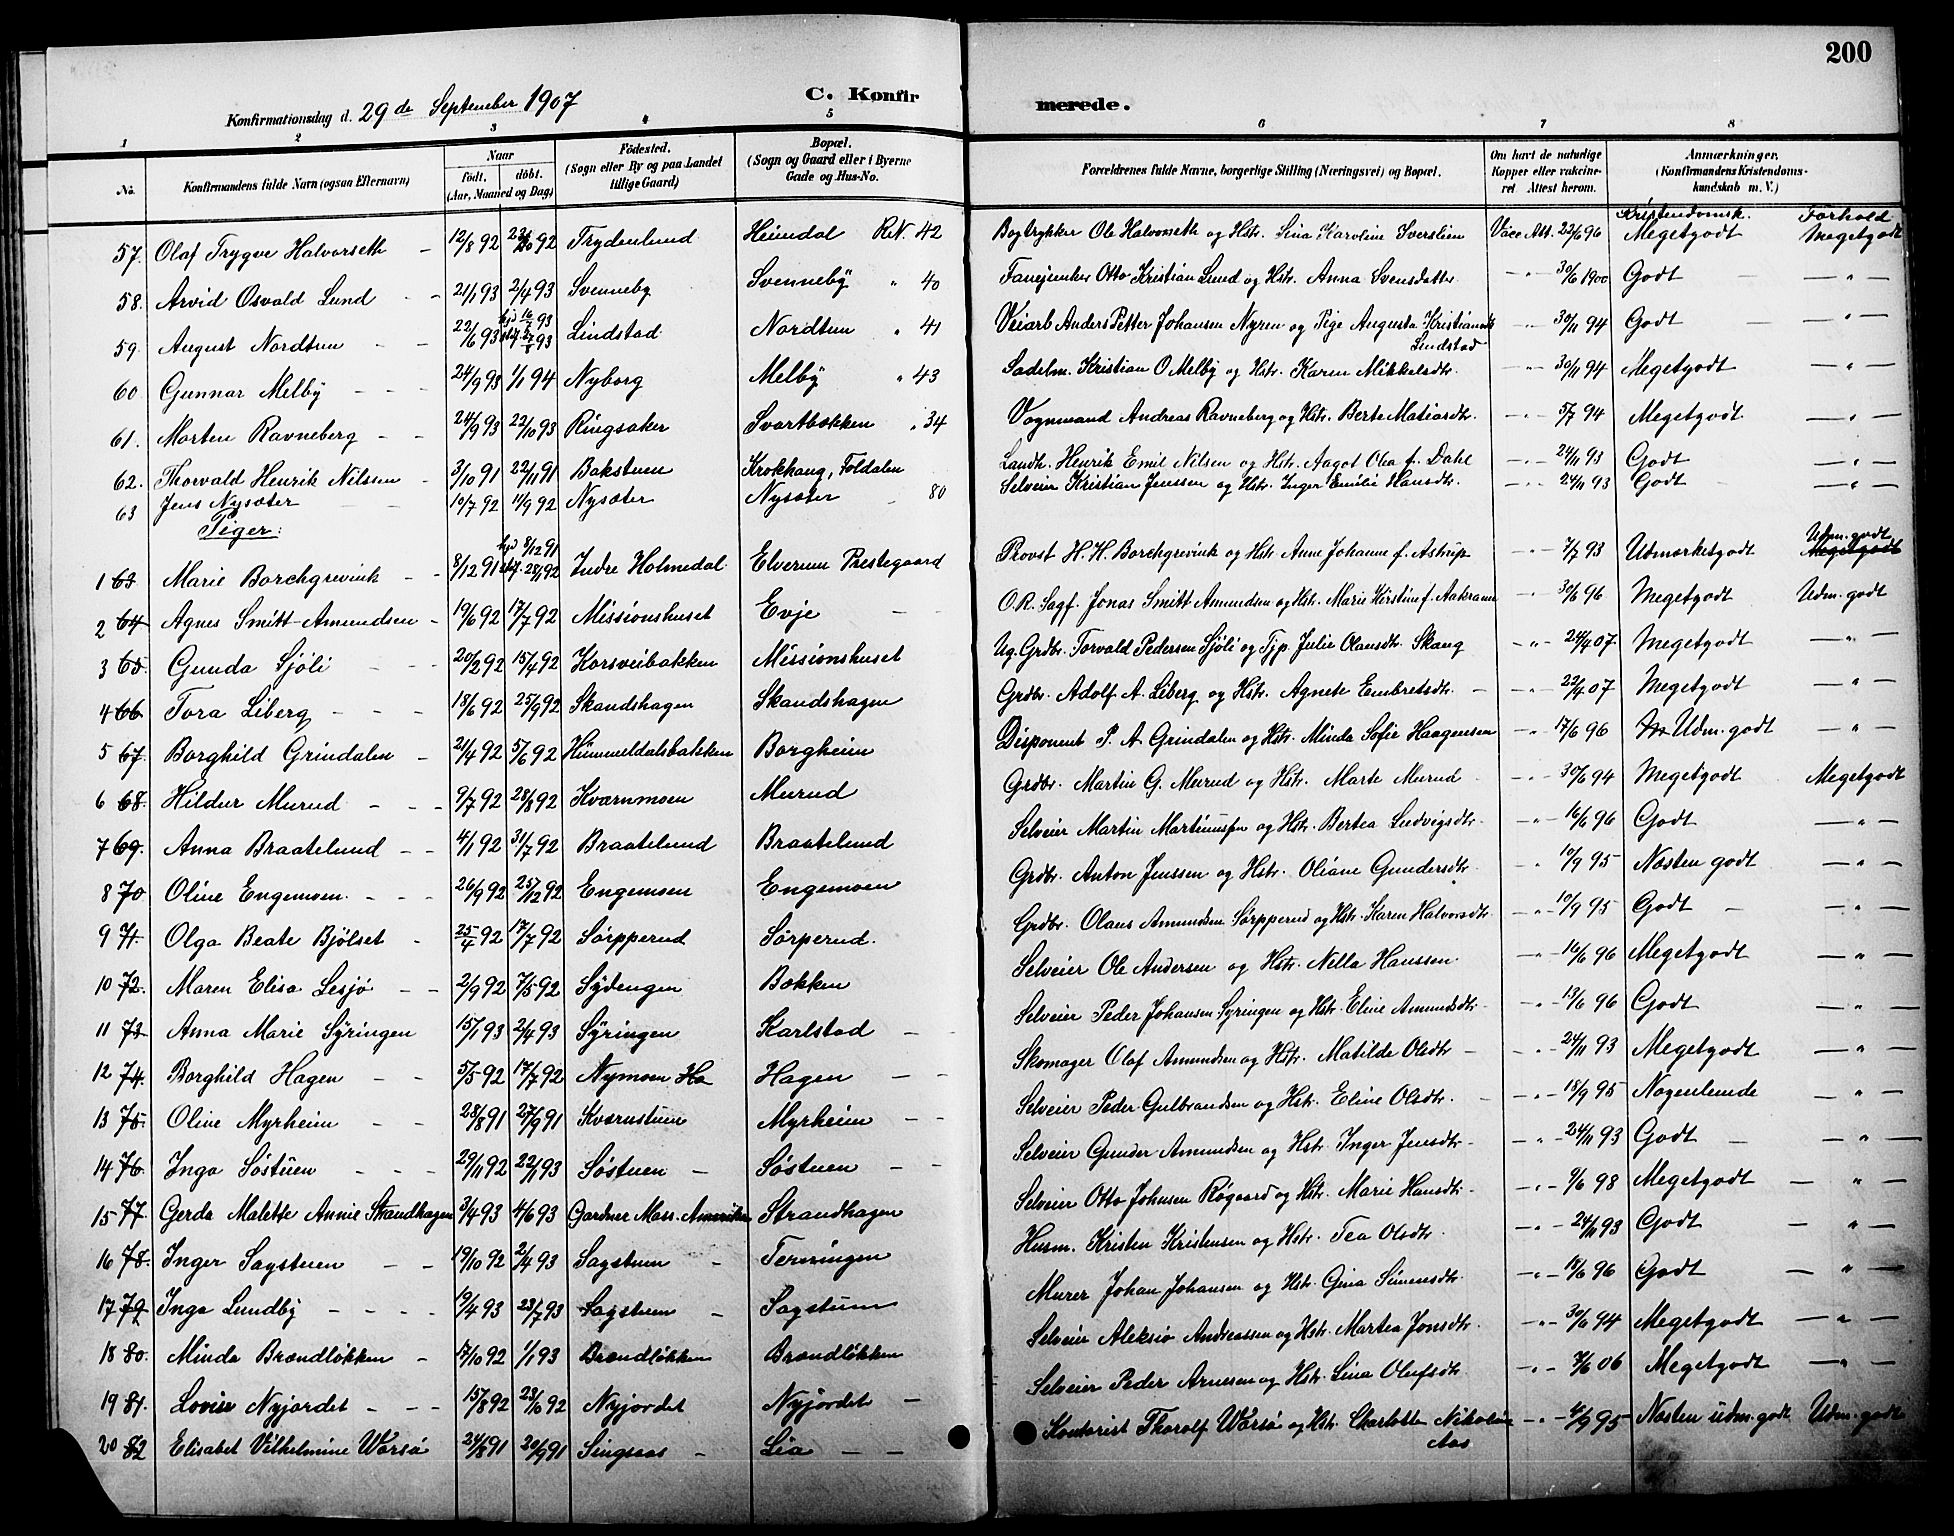 200
Konfirmationsdag d. 29de September 1907
C. Konfir
merede.
1 2 3 4 5 6 7 8
No. Konfirmandens fulde Navn (ogsaa Efternavn)
Naar
födt. döbt.
(Aar, Maaned og Dag)
Födested.
(Sogn eller By og paa Landet
tillige Gaard)
Bopæl.
(Sogn og Gaard eller i Byerne
Gade og Hus-No.
Forældrenes fulde Navne, borgerlige Stilling (Næringsvei) og Bopæl.
Om havt de naturlige
Kopper eller vakcine-
ret Attest herom.
Anmærkninger.
(Konfirmandens Kristendoms-
kundskab m. V.)
Kristendomsk. Forhold
57. Olaf Trygve Halvorseth - 12/8 92 Trydenlund Heimdal R.N. 42 Bogtrykker Ole Halvorseth og Hstr. Lina Karoline Iverstien Vacc Att. 22/6 96 Megetgodt Megetgodt
58. Arvid Osvald Lund - - 21/1 93 2/4 93 Svenneby Svenneby " 40 Fanejunker Otto Kristian Lund og Hstr. Anna Svensdatter - " - 30/6 1900 Godt - " -
59. August Nordtun - - 22/6 93 hjd 16/7 93 stdf. 27/8 93 Lindstad Nordtun " 41 Veiarb Anders Petter Johansen Nyren og Pige Augusta Kristiansdt - " - 30/11 94 Godt - " -
Lindstad
60 Gunnar Melby - - - 24/9 93 1/1 94 Nyborg Melby " 43 Sadelm. Kristian O Melby og Hstr. Karen Mikkelsdtr. - " - 30/11 94 Megetgodt - " -
61. Morten Ravneberg - - 24/9 93 22/10 93 Ringsaker Svartbækken " 34 Vognmand Andreas Ravneberg og Hstr. Berte Matiasdtr. - " - 5/7 94 Megetgodt - " -
62. Thorvald Henrik Nilssen - 3/10 91 22/11 91 Bakstuen Krokhaug, Foldalen Landh. Henrik Emil Nilsen og Hstr. Aagot Olea f. Dahl - " - 24/11 93 Godt - " -
63 Jens Nysæter - - 10/7 92 11/9 92 Nysæter Nysæter - 80 Selveier Kristian Jenssen og Hstr. Inger Emilie Hansdtr. - " - 24/11 93 Godt - " -
Piger:
1 63 Marie Borchgrevink - - 8/12 91 hjd 8/12 91 stdf. 28/1 92 Indre Holmedal Elverum Prestegaard Provst H. H. Borchgrevink og Hstr. Anne Johanne f. Astrup - " - 7/7 93 Udmærketgodt Udm. godt Megetgodt
2 64 Agnes Smitt-Amundsen - 19/6 92 17/7 92 Missionshuset Evje - - O.R. Sagf. Jonas Smitt Amundsen og Hstr. Marie Kirstine f. Aakrann - " - 30/6 96 Megetgodt Udm. godt
3 65 Gunda Sjöli - - - 20/2 92 15/4 92 Korsveibakken Missionshuset Ug. Grdbr. Torvald Pedersen Sjöli og Tjp. Julie Olausdtr. Skaug - " - 24/4 07 Megetgodt - " -
4 66 Tora Liberg - - - 18/6 92 25/9 92 Skandshagen Skandshagen Grdbr. Adolf A. Liberg og Hstr. Agnete Embretsdtr. - - " - 22/4 07 Megetgodt - " -
5 67. Borghild Grindalen - 21/4 92 5/6 92 Himmeldalsbakken Borgheim Disponent P. A Grindalen og Hstr. Minda Sofie Haagensen - " - 17/6 96 M Udm. godt - " -
6 68. Hildur Murud - - - 9/7 92 28/8 92 Kværnmoen Murud Grdbr. Martin G. Murud og Hstr. Marte Murud - - " - 30/6 94 Megetgodt Megetgodt
7 69. Anna Braatelund - - 4/1 92 31/7 92 Braatelund Braatelund Selveier Martin Martinussen og Hstr. Bertea Ludvigsdtr. - " - 16/6 96 Godt - " -
8 70 Oline Engemoen. - - - 26/9 92 25/12 92 Engemoen Engemoen Grdbr. Anton Jenssen og Hstr. Oliane Gundersdtr. - " - 10/9 95 Næsten godt - " -
9 71. Olga Beate Bjölset - 25/4 92 17/7 92 Sörpperud Sörperud. Grdbr. Olaus Amundsen Sörpperud og Hstr. Karen Halvorsdtr. - " - 10/9 95 Godt - - " -
10 72. Maren Elise Lesjö - - 2/9 92 7/5 92 Sydengen Bækken Selveier Ole Andersen og Hstr. Nella Hanssen - " - 16/6 96 Megetgodt - " -
11 73 Anna Marie Syringen 15/1 93 2/4 93 Syringen Karlstad - - Selveier Peder Johansen Syringen og Hstr. Eline Amundsdtr. - " - 13/6 96 Godt - " -
12 74. Borghild Hagen - - 5/5 92 17/7 92 Nymoen Ha Hagen - - Skomager Olaf Amundsen og Hstr. Matilde Olsdtr - - " - 24/11 93 Megetgodt - " -
13 75. Oline Myrheim - - 28/8 91 27/9 91 Kværnstuen Myrheim - - Selveier Peder Gulbrandsen og Hstr. Eline Olsdtr. - - " - 18/9 95 Nogenlunde - " -
14 76. Inga Söstuen - - - 29/11 92 22/1 93 Söstuen - Söstuen - - Selveier Gunder Amundsen og Hstr. Inger Jensdtr. - " - 24/11 93 Godt - - " -
15 77. Gerda Malette Annie Strandhagen 3/4 93 4/6 93 Gardner Mass. Amerika Strandhagen Selveier Otto Johnsen Rögaard og Hstr. Marie Hansdtr. - " - 9/6 98 Megetgodt - " -
16 78. Inger Sagstuen - - 19/10 92 2/4 93 Sagstuen - Terningen Husm. Kristen Kristensen og Hstr. Tea Olsdtr. - " - 24/11 93 Godt - " -
17 79 Inga Lundby - - - - 19/4 93 23/7 93 Sagstuen - Sagstuen Murer Johan Johansen og Hstr. Gina Simensdtr. - " - 18/6 96 Godt - " -
18 80. Minda Brændløkken - 17/10 92 1/1 93 Brændløkken Brændløkken Selveier Aleksis Andreassen og Hstr. Martea Jonsdtr. - " - 30/6 94 Megetgodt - " -
19 81. Lovise Nyjordet - - - 15/8 92 23/10 92 Nyjordet Nyjordet - Selveier Peder Arnesen og Hstr. Lina Olufsdtr - " - 7/6 06 Megetgodt - " -
20 82 Elisabet Vilhelmine Warsö 24/8 91 20/9 91 Singsaas - Lia - - Kontorist Thorolf Warsö og Hstr. Charlotte Nikoline - " - 4/9 95 Næsten udm. godt Udm. godt
Aas